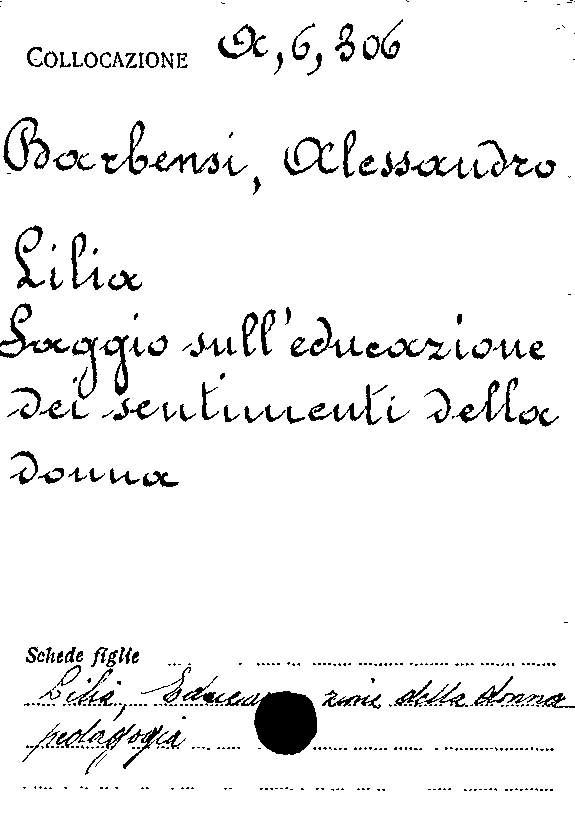 COLLOCAZIONE A, 6, 306
Barbensi, Alessandro
Lilia
Saggio sull'educazione
dei sentimenti della
donna
Schede figlie
Lilia, Educazione della donna
pedagogia